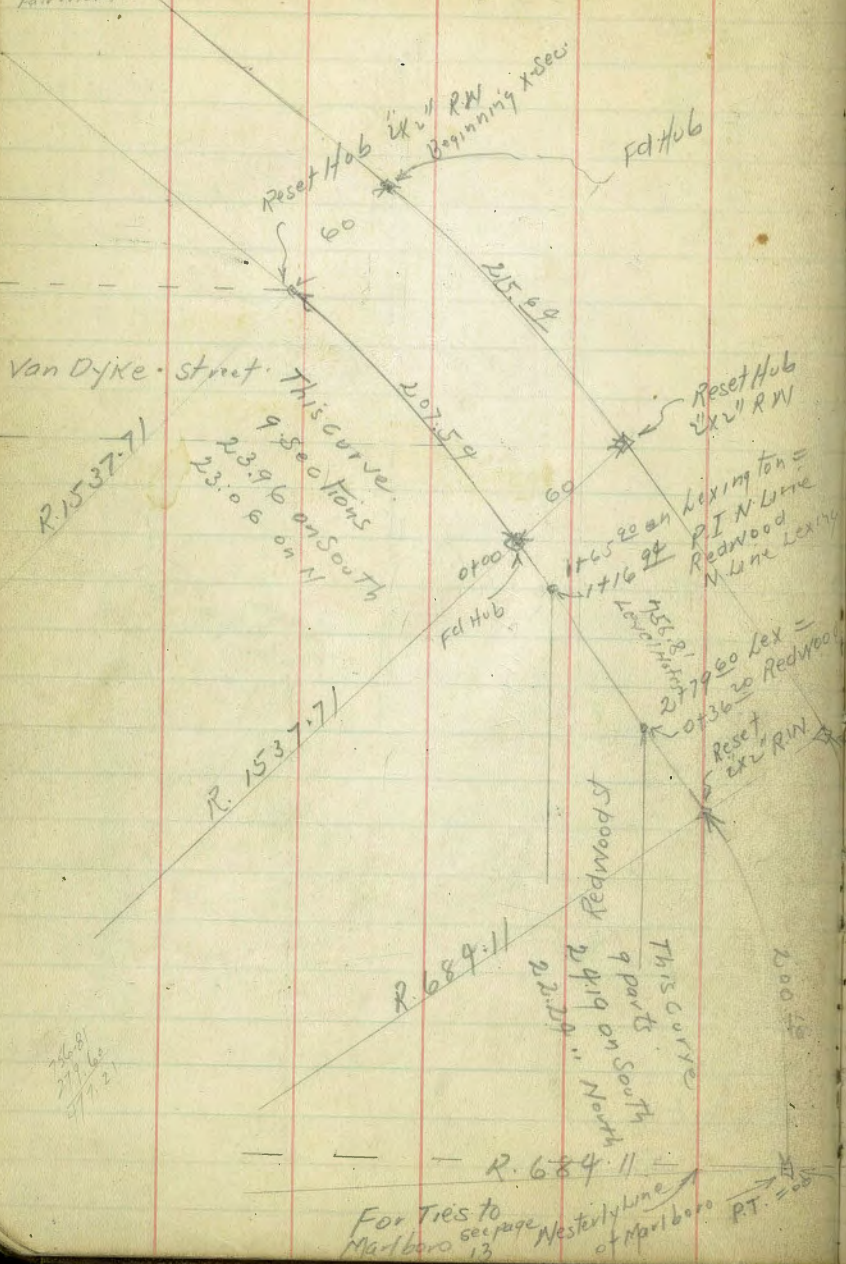 Reset Hub 2"x2" R.W
Beginning x-Sec.
Fd Hub
60
215.64
Reset Hub
2"x2" R.W
Van Dyke. Street.
R. 1537.71
This Curve.
9. Sections
23.96 on South
23.06 on N
207.54
60
0+00
Fd Hub
1+65.90 on Lexington =
1+16.94 P.I N. Line
Redwood
N Line Lexing
756.81
Level Notes
2+79.60 Lex =
0+36.20 Redwood
Reset
2"x2" R.W
R. 1537.71
Redwood St
R. 684.11
This Curve
9 parts
24.19 on South
22.29 " North
200
756.81
279.60
477.21
R. 684.11
For Ties to
Marlboro see page
13
Westerly Line
of Marlboro
P.T. =